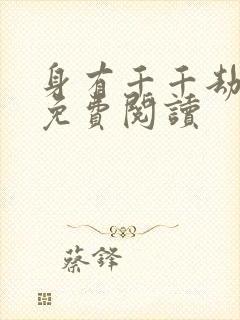 身有千千劫
免費閱讀
蔡鐸